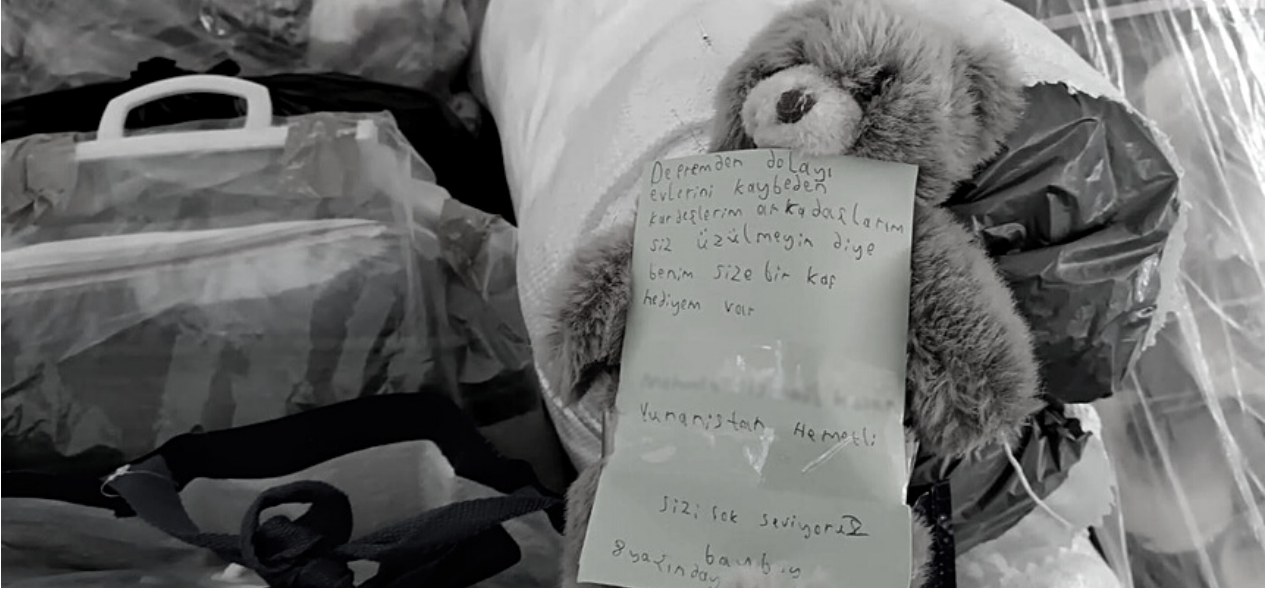 Depremden dolayı
evlerini kaybeden
kardeşlerim arkadaşlarım
siz üzülmeyin diye
benim size bir kaç
hediyem var
Yunanistan Hemetli
sizi çok seviyoruz
8 yaşınday